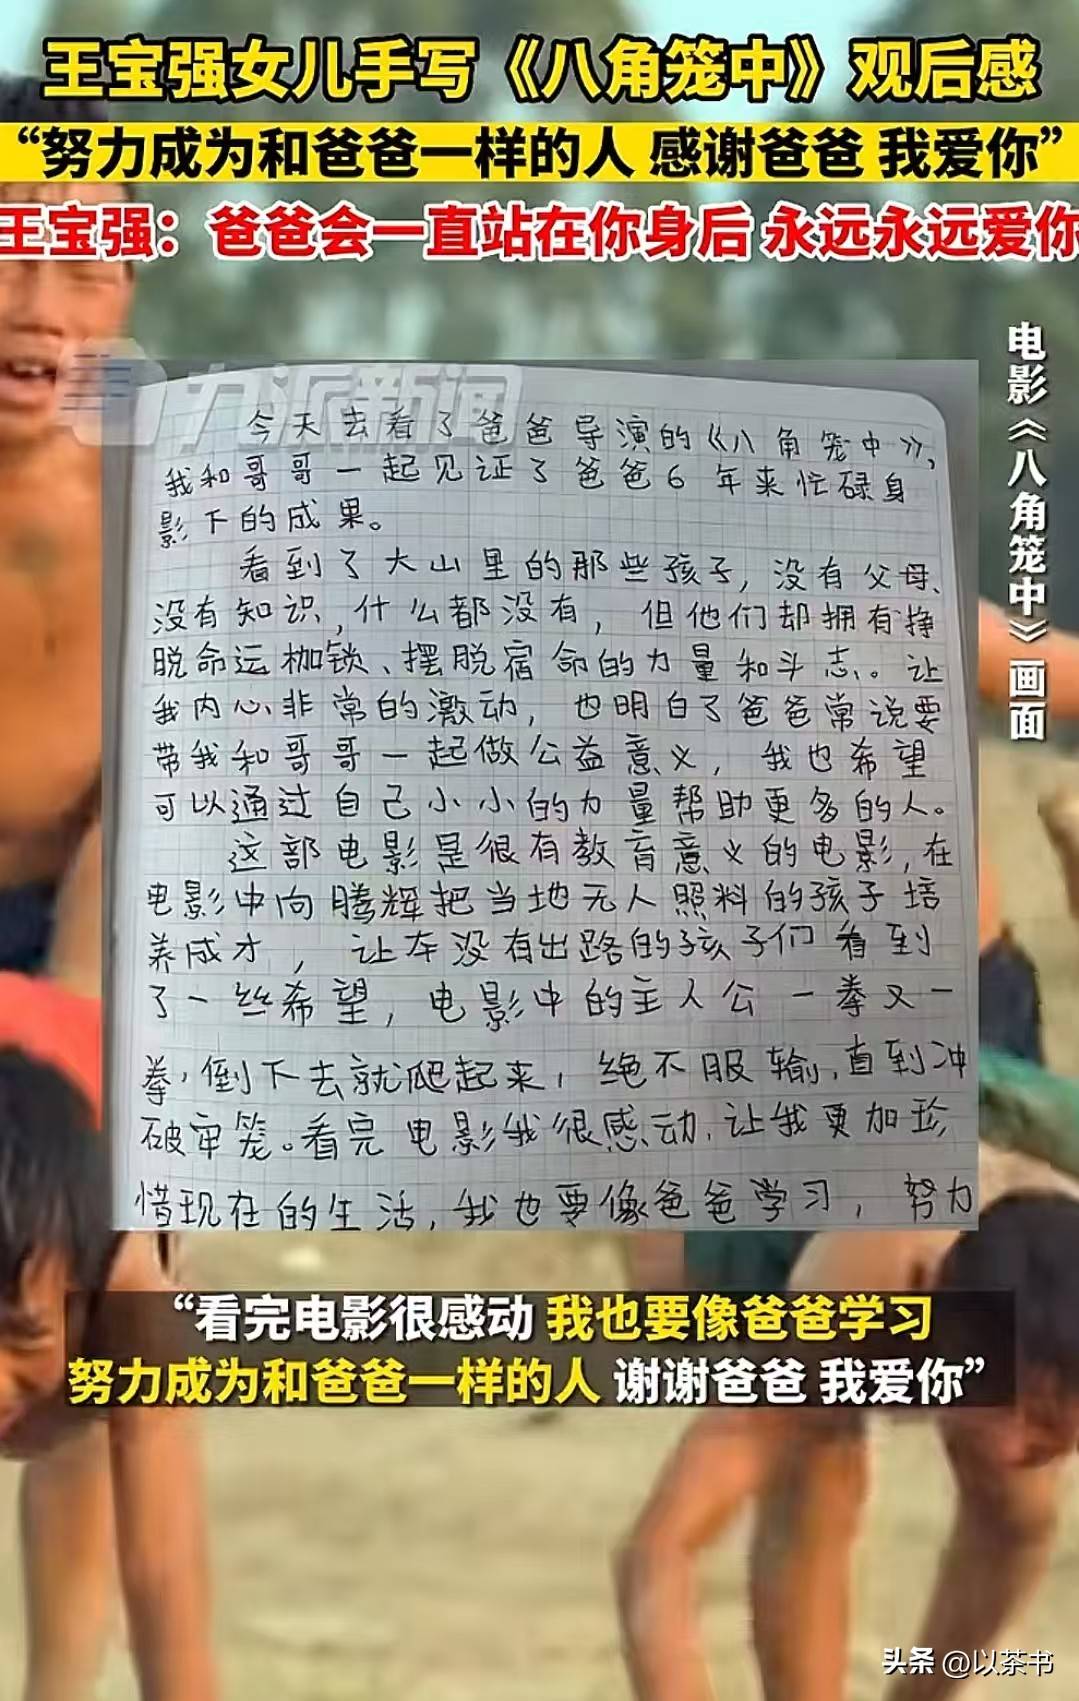 王宝强女儿手写《八角笼中》观后感
“努力成为和爸爸一样的人 感谢爸爸 我爱你”
王宝强：爸爸会一直站在你身后 永远永远爱你
电影《八角笼中》画面
九派新闻
今天去看了爸爸导演的《八角笼中》，
我和哥哥一起见证了爸爸6年来忙碌身
影下的成果。
看到了大山里的那些孩子，没有父母、
没有知识，什么都没有，但他们却拥有挣
脱命运枷锁、摆脱宿命的力量和斗志。让
我内心非常的激动，也明白了爸爸常说要
带我和哥哥一起做公益意义，我也希望
可以通过自己小小的力量帮助更多的人。
这部电影是很有教育意义的电影，在
电影中向腾辉把当地无人照料的孩子培
养成才，让本没有出路的孩子们看到
了一丝希望，电影中的主人公一拳又一
拳，倒下去就爬起来，绝不服输，直到冲
破牢笼。看完电影我很感动，让我更加珍
惜现在的生活，我也要像爸爸学习，努力
“看完电影很感动 我也要像爸爸学习
努力成为和爸爸一样的人 谢谢爸爸 我爱你”
头条 @以茶书